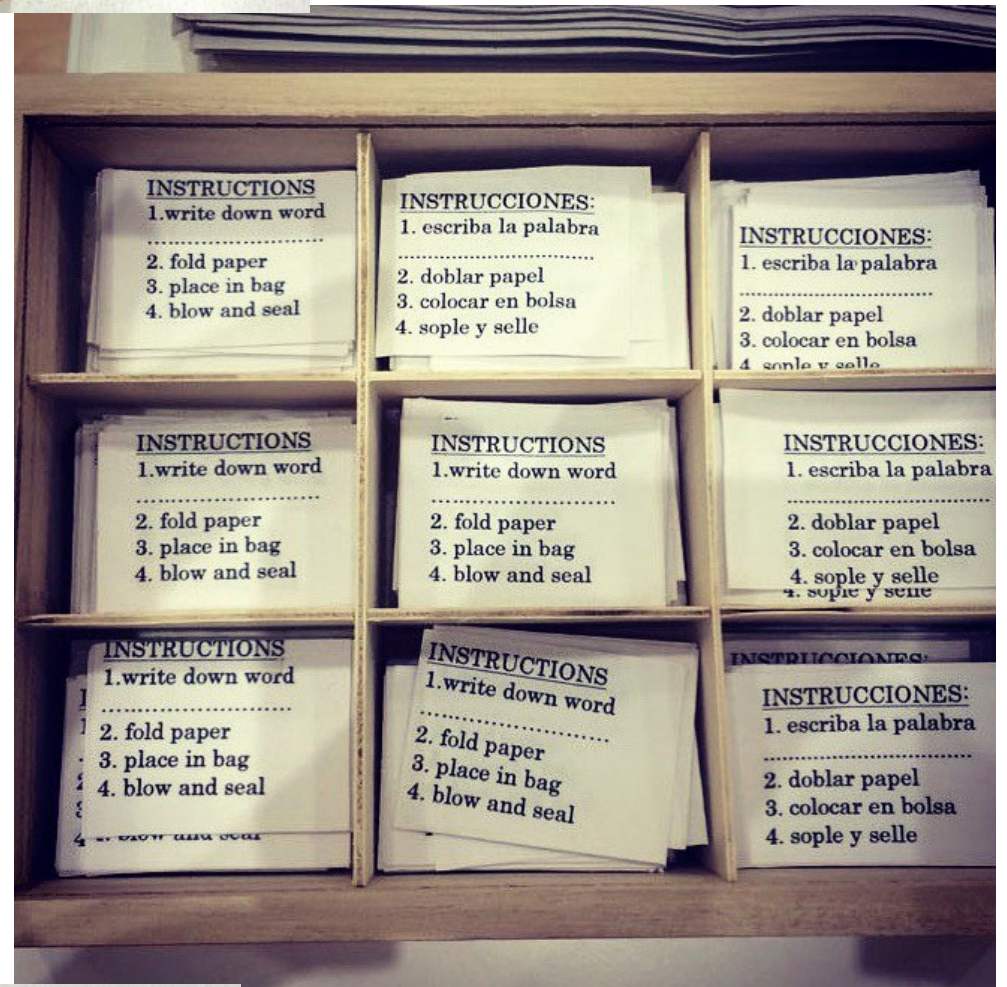 INSTRUCTIONS
1.write down word
........................
2. fold paper
3. place in bag
4. blow and seal
INSTRUCCIONES:
1. escriba la palabra
..........................
2. doblar papel
3. colocar en bolsa
4. sople y selle
INSTRUCCIONES:
1. escriba la palabra
..........................
2. doblar papel
3. colocar en bolsa
4. sople y selle
INSTRUCTIONS
1.write down word
........................
2. fold paper
3. place in bag
4. blow and seal
INSTRUCTIONS
1.write down word
........................
2. fold paper
3. place in bag
4. blow and seal
INSTRUCCIONES:
1. escriba la palabra
..........................
2. doblar papel
3. colocar en bolsa
4. sople y selle
4. sople y selle
INSTRUCTIONS
1.write down word
........................
2. fold paper
3. place in bag
4. blow and seal
4. blow and seal
INSTRUCTIONS
1.write down word
........................
2. fold paper
3. place in bag
4. blow and seal
INSTRUCCIONES:
INSTRUCCIONES:
1. escriba la palabra
..........................
2. doblar papel
3. colocar en bolsa
4. sople y selle